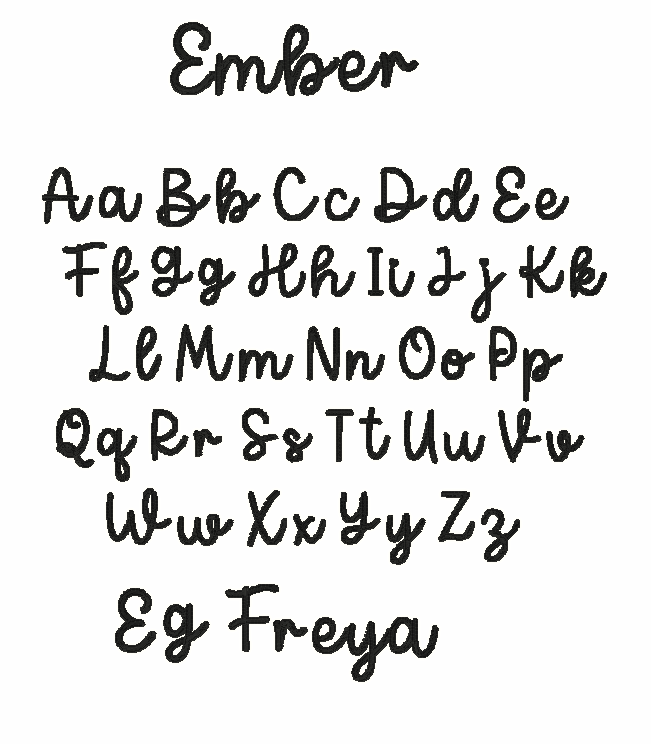 Ember
Aa Bb Cc Dd Ee
Ff Gg Hh Ii Jj Kk
Ll Mm Nn Oo Pp
Qq Rr Ss Tt Uu Vv
Ww Xx Yy Zz
Eg Freya